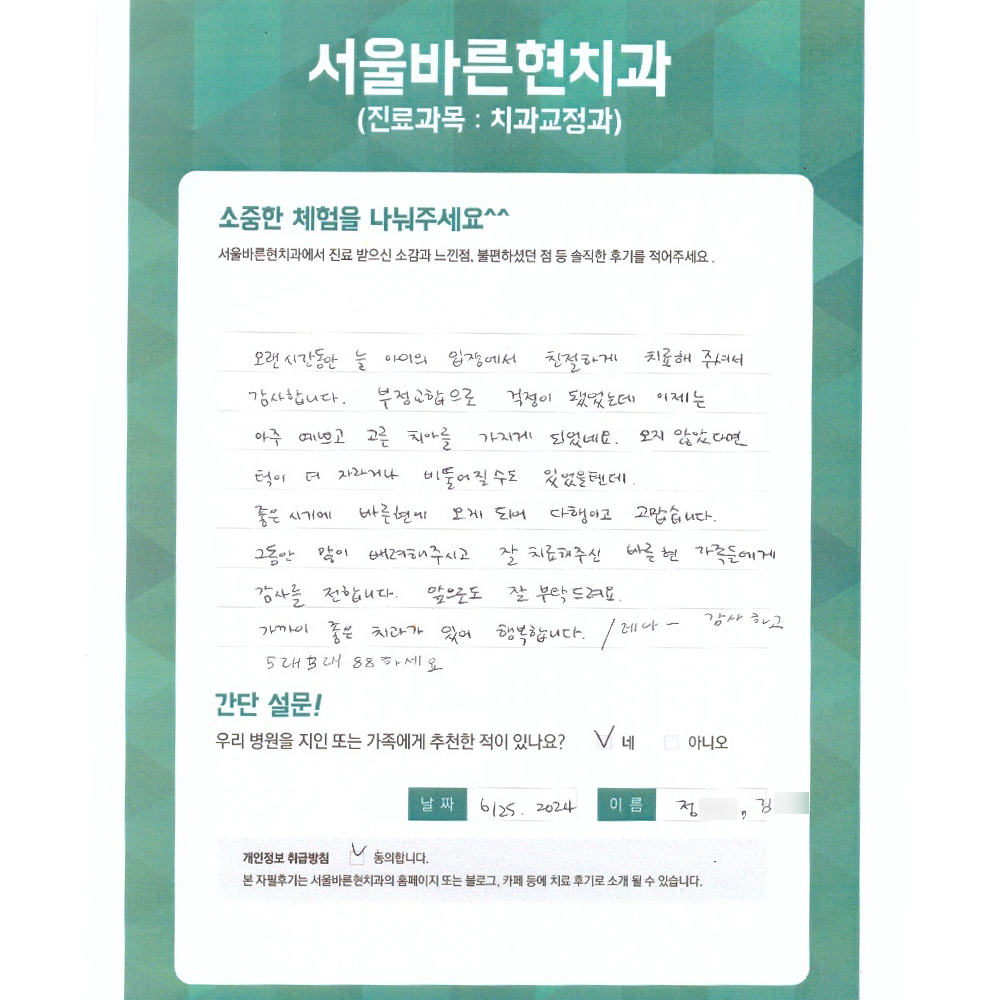 서울바른현치과
(진료과목 : 치과교정과)
소중한 체험을 나눠주세요^^
서울바른현치과에서 진료 받으신 소감과 느낀점, 불편하셨던 점 등 솔직한 후기를 적어주세요.
오랜시간동안 늘 아이의 입장에서 친절하게 치료해 주셔서
감사합니다. 부정교합으로 걱정이 됐었는데 이제는
아주 예쁘고 고른 치아를 가지게 되었네요. 오지 않았다면
턱이 더 자라거나 비뚤어질수도 있었을텐데.
좋은 시기에 바른현에 오게 되어 다행이고 고맙습니다.
그동안 많이 배려해주시고 잘 치료해주신 바른현 가족들에게
감사를 전합니다. 앞으로도 잘 부탁드려요.
가까이 좋은 치과가 있어 행복합니다. / 감사하고
5래5래 88하세요
간단 설문!
우리 병원을 지인 또는 가족에게 추천한 적이 있나요? 네 아니오
날 짜 6/25. 2024 이 름 정 , 김
개인정보 취급방침 동의합니다.
본 자필후기는 서울바른현치과의 홈페이지 또는 블로그, 카페 등에 치료 후기로 소개 될 수 있습니다.